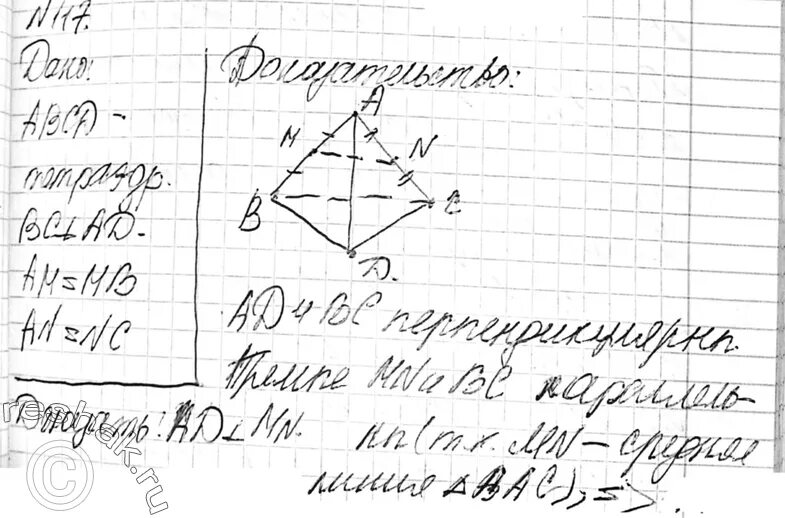 N117.
Дано:
ABCD -
тетраэдр.
BC⊥AD.
AM=MB
AN=NC
Доказать: AD⊥MN.
Доказательство:
A
M
N
B
C
D.
AD и BC перпендикулярны.
Прямые MN и BC параллель-
ны (т.к. MN – средняя
линия △BAC), =>.
reshak.ru